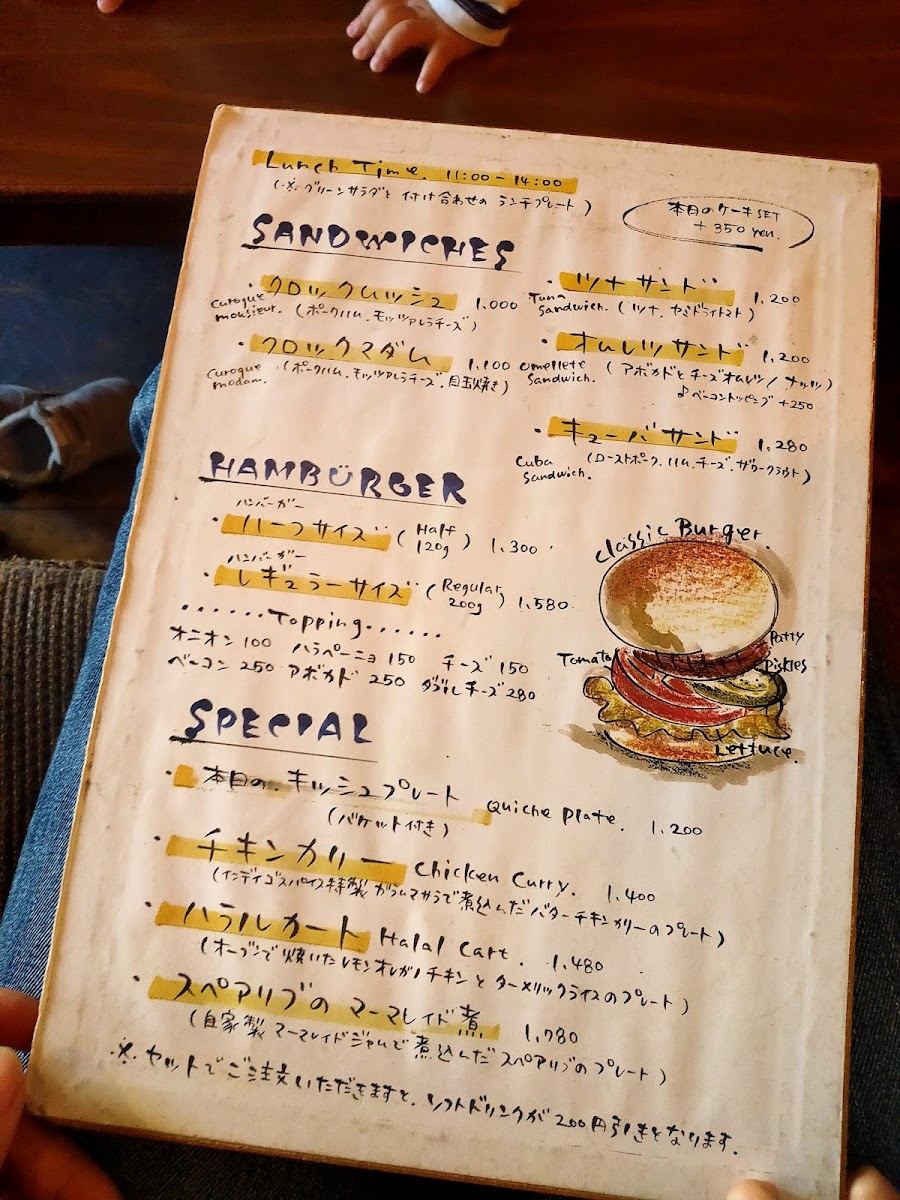 Lunch Time. 11:00-14:00
(※グリーンサラダと付け合わせのランチプレート)
本日のケーキSET
+350yen.
SANDWICHES
・クロックムッシュ 1.000
Curoque mousieur. (ポークハム.モッツァレラチーズ)
・クロックマダム 1.100
Curoque modam. (ポークハム.モッツァレラチーズ.目玉焼き)
・ツナサンド 1.200
Tuna Sandwich. (ツナ.セミドライトマト)
・オムレツサンド 1.200
Omellete Sandwich. (アボカドとチーズオムレツ/ナッツ)
♪ベーコントッピング +250
・キューバサンド 1.280
Cuba Sandwich. (ローストポーク.ハム.チーズ.ザワークラウト)
HAMBÜRGER
ハンバーガー
・ハーフサイズ (Half 120g) 1.300
ハンバーガー
・レギュラーサイズ (Regular 200g) 1.580
......Topping......
オニオン 100 ハラペーニョ 150 チーズ 150
ベーコン 250 アボカド 250 ダブルチーズ 280
Classic Burger.
Patty
Tomato
Pickles
Lettuce.
SPECIAL
・本日の.キッシュプレート Quiche Plate. 1.200
(バケット付き)
・チキンカリー Chicken Curry. 1.400
(インディゴスパイス特製ガラムマサラで煮込んだバターチキンカリーのプレート)
・ハラルカート Halal Cart. 1.480
(オーブンで焼いたレモンオレガノチキンとターメリックライスのプレート)
・スペアリブのマーマレイド煮 1.780
(自家製マーマレイドジャムで煮込んだスペアリブのプレート)
※.セットでご注文いただきますと.ソフトドリンクが200円引きとなります.